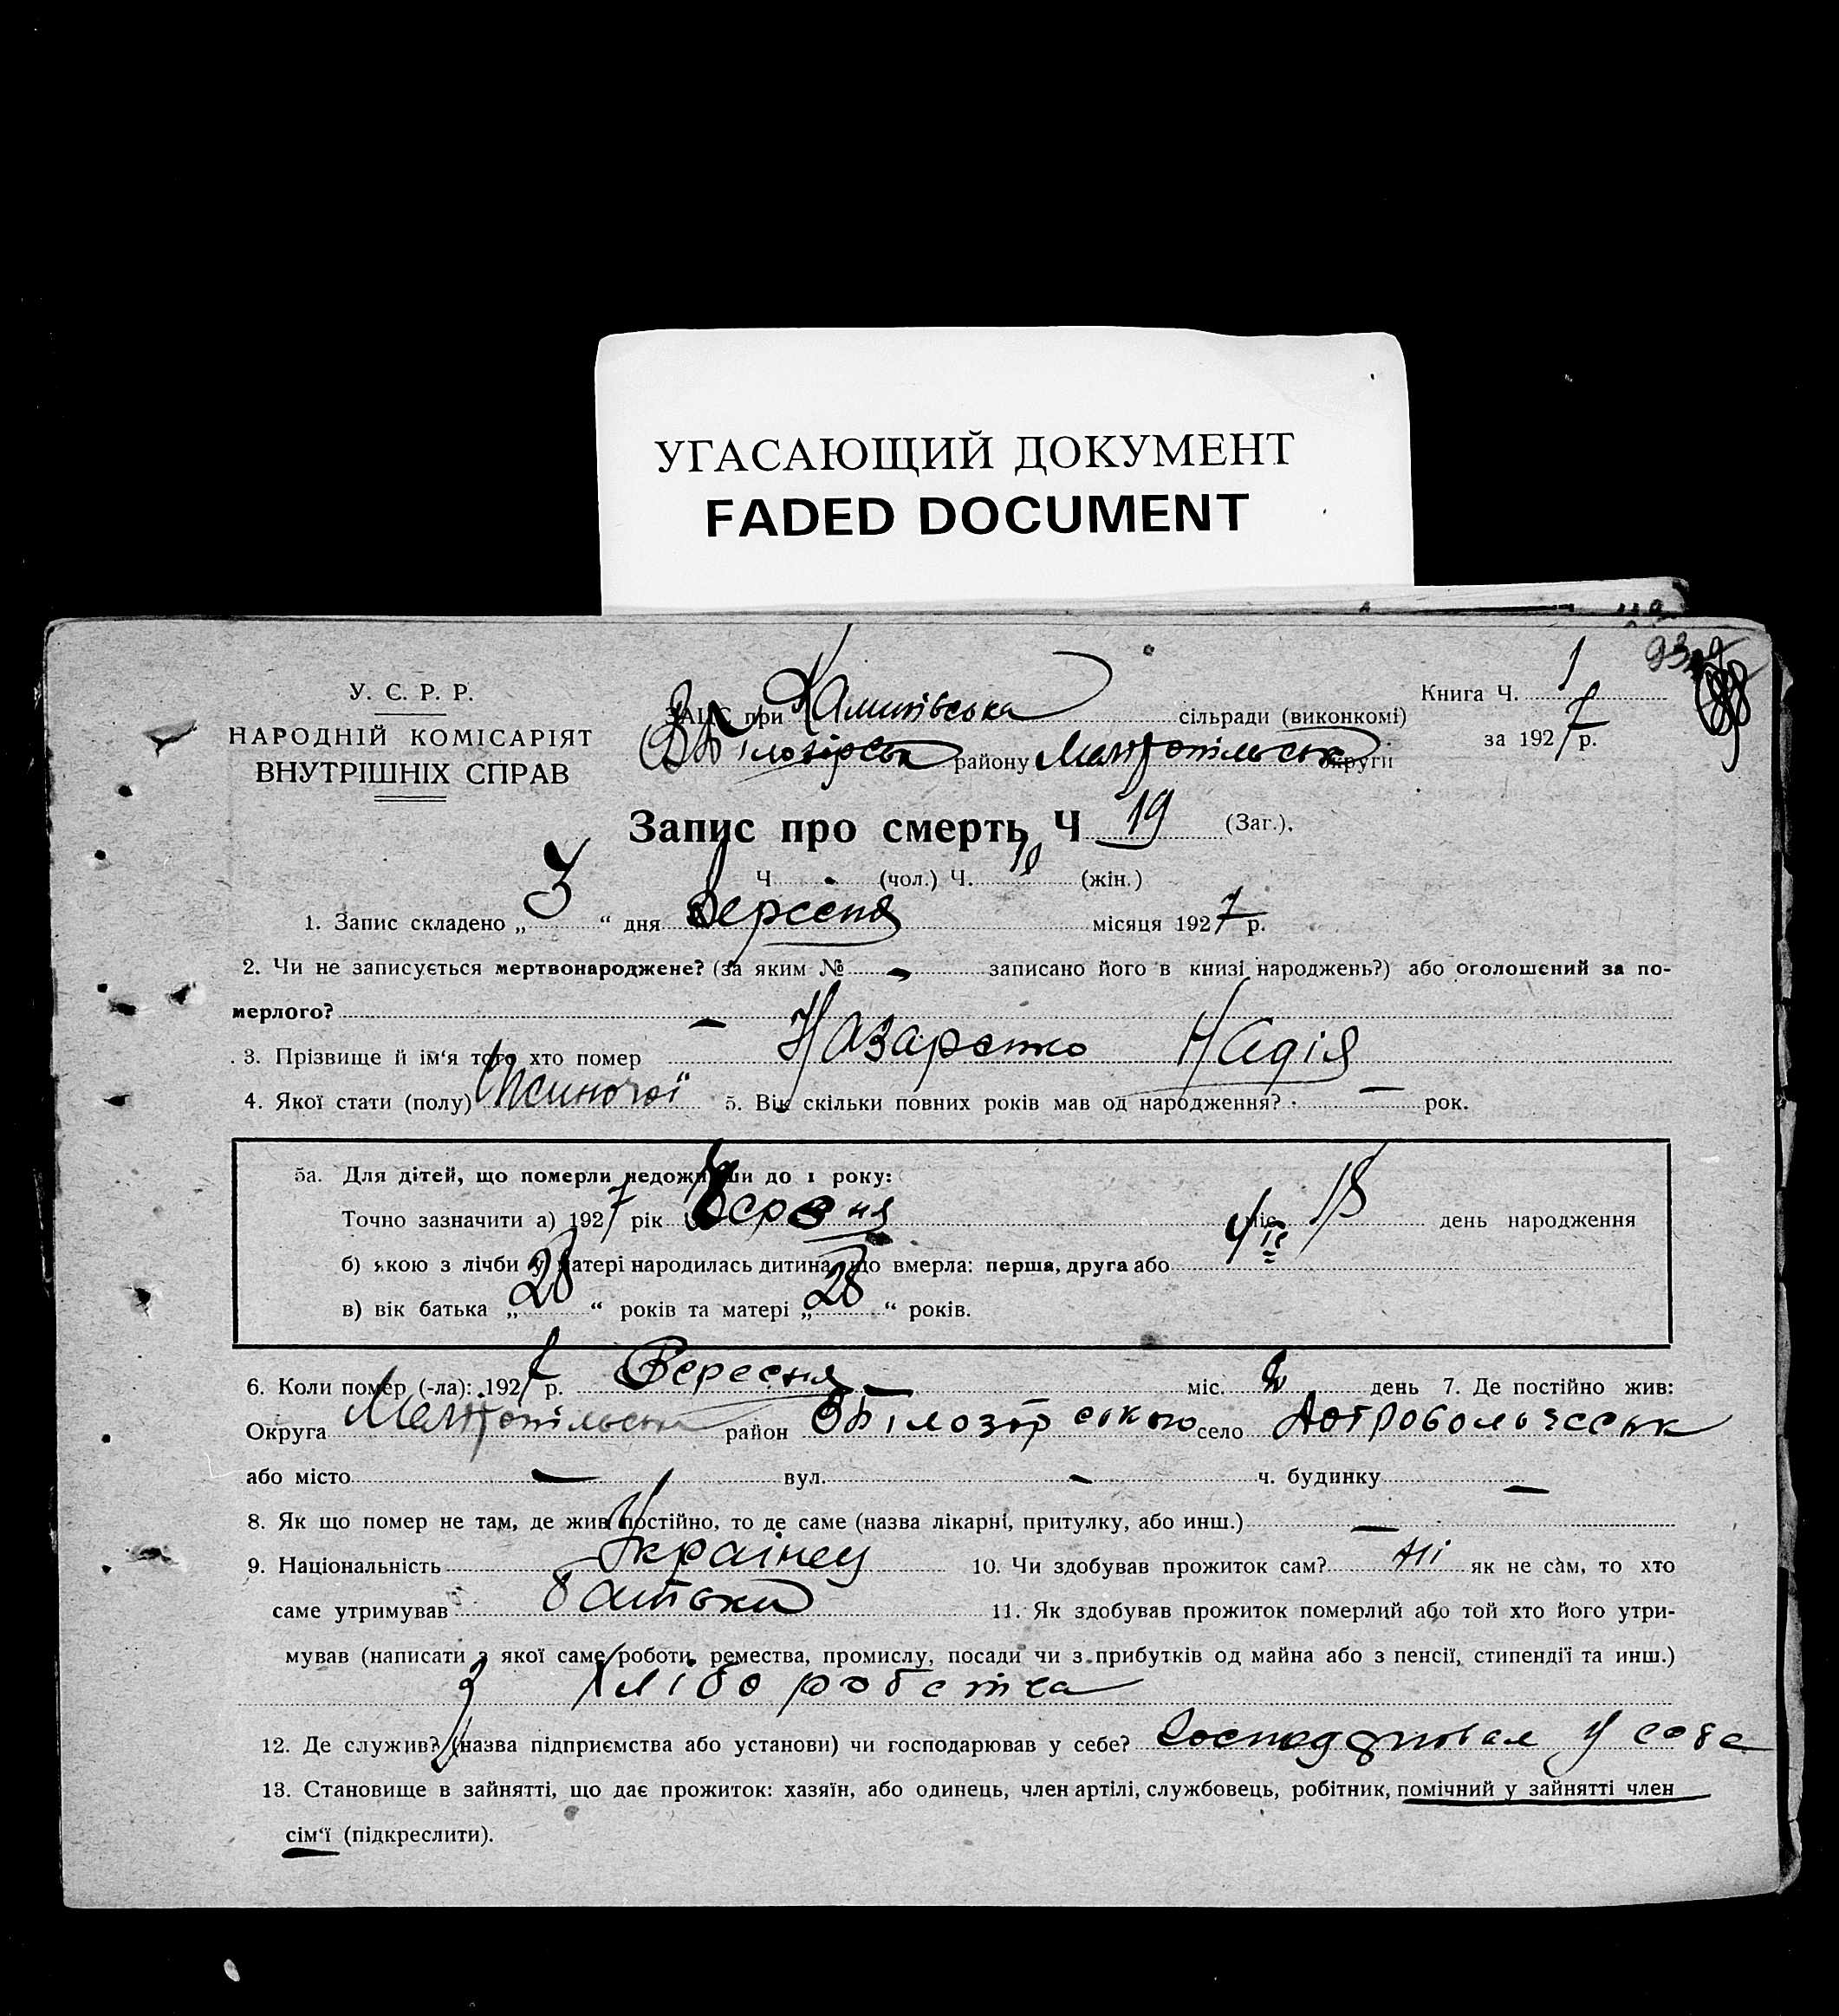 УГАСАЮЩИЙ ДОКУМЕНТ
FADED DOCUMENT
У. С. Р. Р.
НАРОДНІЙ КОМІСАРІЯТ
ВНУТРІШНІХ СПРАВ
ЗАЦС при сільради (виконкомі)
В Білозірськ району округи
Книга Ч. 1
за 1927 р.
Запис про смерть Ч 19 (Заг.).
Ч (чол.) Ч. 10 (жін.)
1. Запис складено „ 3 “ дня Вересня місяця 1927 р.
2. Чи не записується мертвонароджене? (за яким № - записано його в книзі народжень?) або оголошений за по-
мерлого? —
3. Прізвище й ім‘я того хто помер Назаренко Надія
4. Якої стати (полу) Жиночої 5. Вік скільки повних років мав од народження? — рок.
5а. Для дітей, що померли недоживши до 1 року:
Точно зазначити а) 1927 рік міс. 18 день народження
б) якою з лічби у матері народилась дитина, що вмерла: перша, друга або
в) вік батька „ 28 “ років та матері „ 28 “ років.
6. Коли помер (-ла): 1927 р. Вересня міс. 2 день 7. Де постійно жив:
Округа район Білозірського село
або місто — вул. - ч. будинку —
8. Як що помер не там, де жив постійно, то де саме (назва лікарні, притулку, або инш.) —
9. Національність Украінец 10. Чи здобував прожиток сам? Ні як не сам, то хто
саме утримував батьки 11. Як здобував прожиток померлий або той хто його утри-
мував (написати з якої саме роботи, ремества, промислу, посади чи з прибутків од майна або з пенсії, стипендії та инш.)
З Хліборобства
12. Де служив? (назва підприємства або установи) чи господарював у себе? у собе
13. Становище в зайнятті, що дає прожиток: хазяїн, або одинець, член артілі, службовець, робітник, помічний у зайнятті член
сім‘ї (підкреслити).